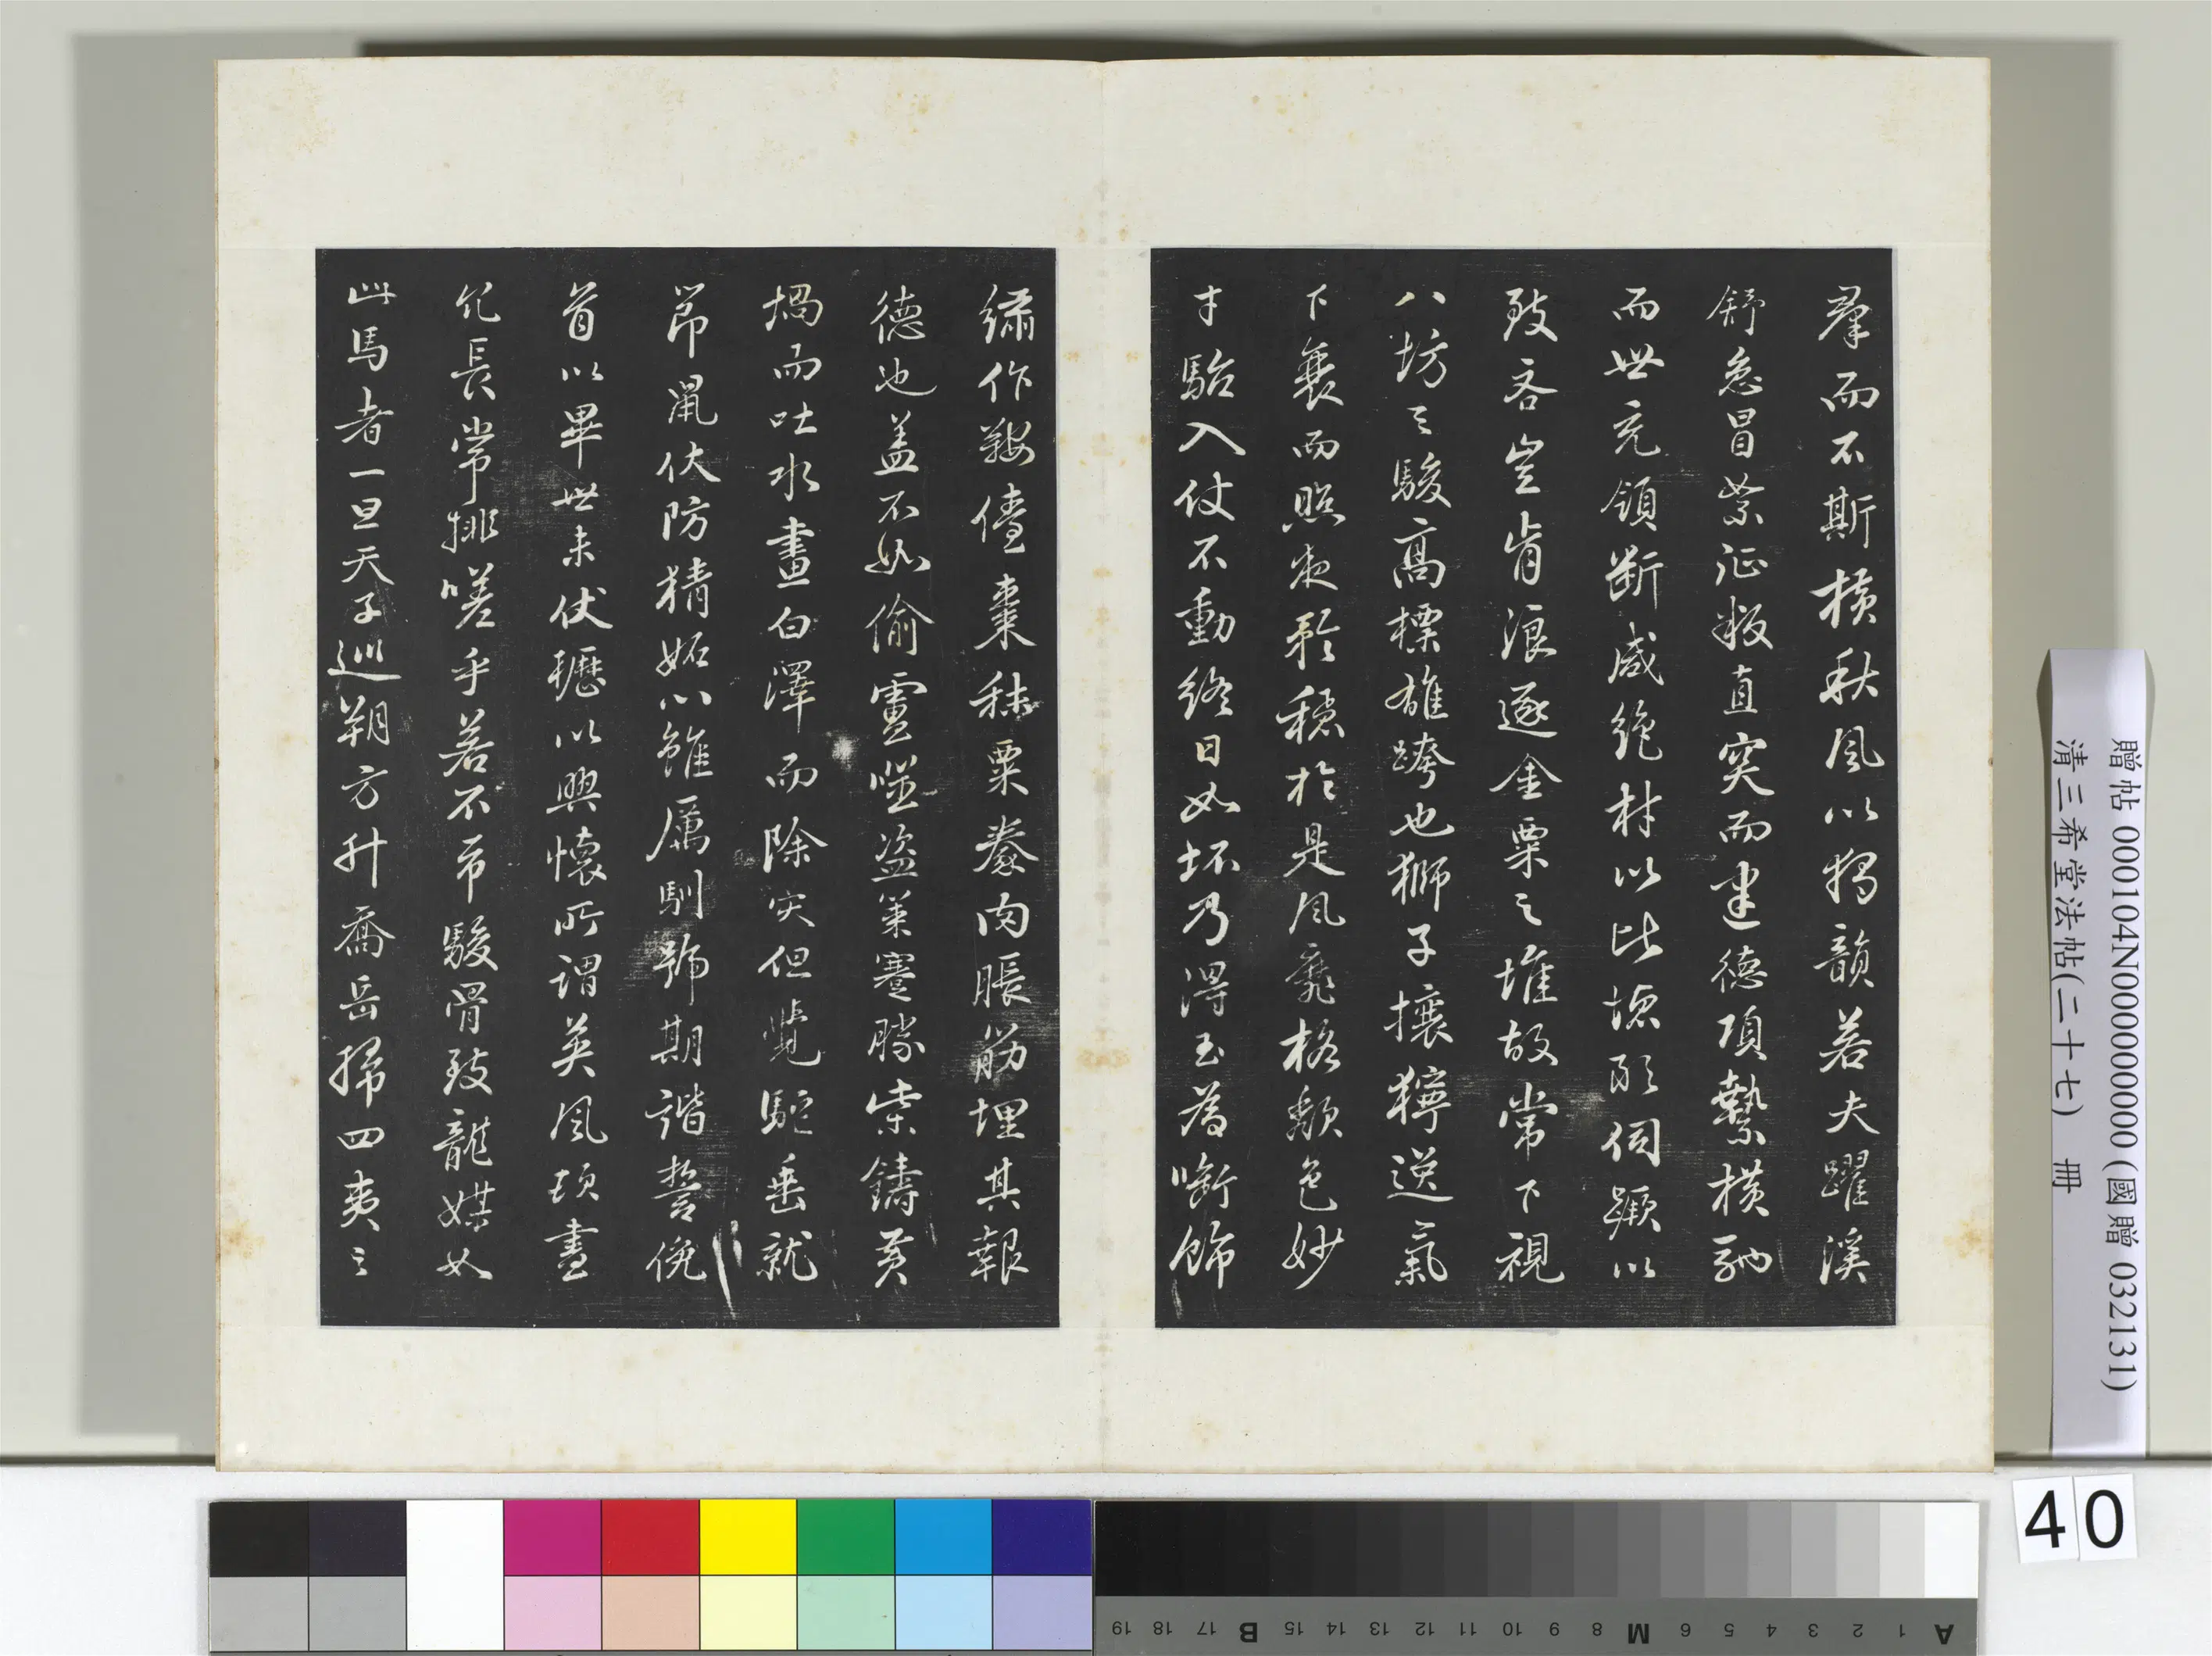 羣而不斯橫秋風以獨韻若夫躍溪
舒急冒絮征叛直突而建德項縶橫馳
而世充領斷咸絕材以比德敢伺蹶以
致吝豈肯浪逐金粟之堆故常下視
八坊之駿高標雄跨也獅子攘獰送氣
下衰而照夜矜穩於是風靡格頹色妙
才駘入仗不動終日如坯乃得玉為嘶飾
繡作鞍儓棗秣粟豢肉脹筋埋其報
德也蓋不如偷盧噬盜策蹇勝柴鑄黃
蝸而吐水畫白澤而除灾但覺駝垂就
節鼠伏防猜妬心雖厲馴號期諧誓俛
首以畢世未伏櫪以興懷所謂英風頓盡
冗長常排嗟乎若不市駿骨致龍媒如
此馬者一旦天子巡朔方升喬岳掃四夷之
贈帖 000104N000000000 (國贈 032131)
清三希堂法帖(二十七) 冊
40
A 1 2 3 4 5 6 M 8 9 10 11 12 13 14 15 B 17 18 19